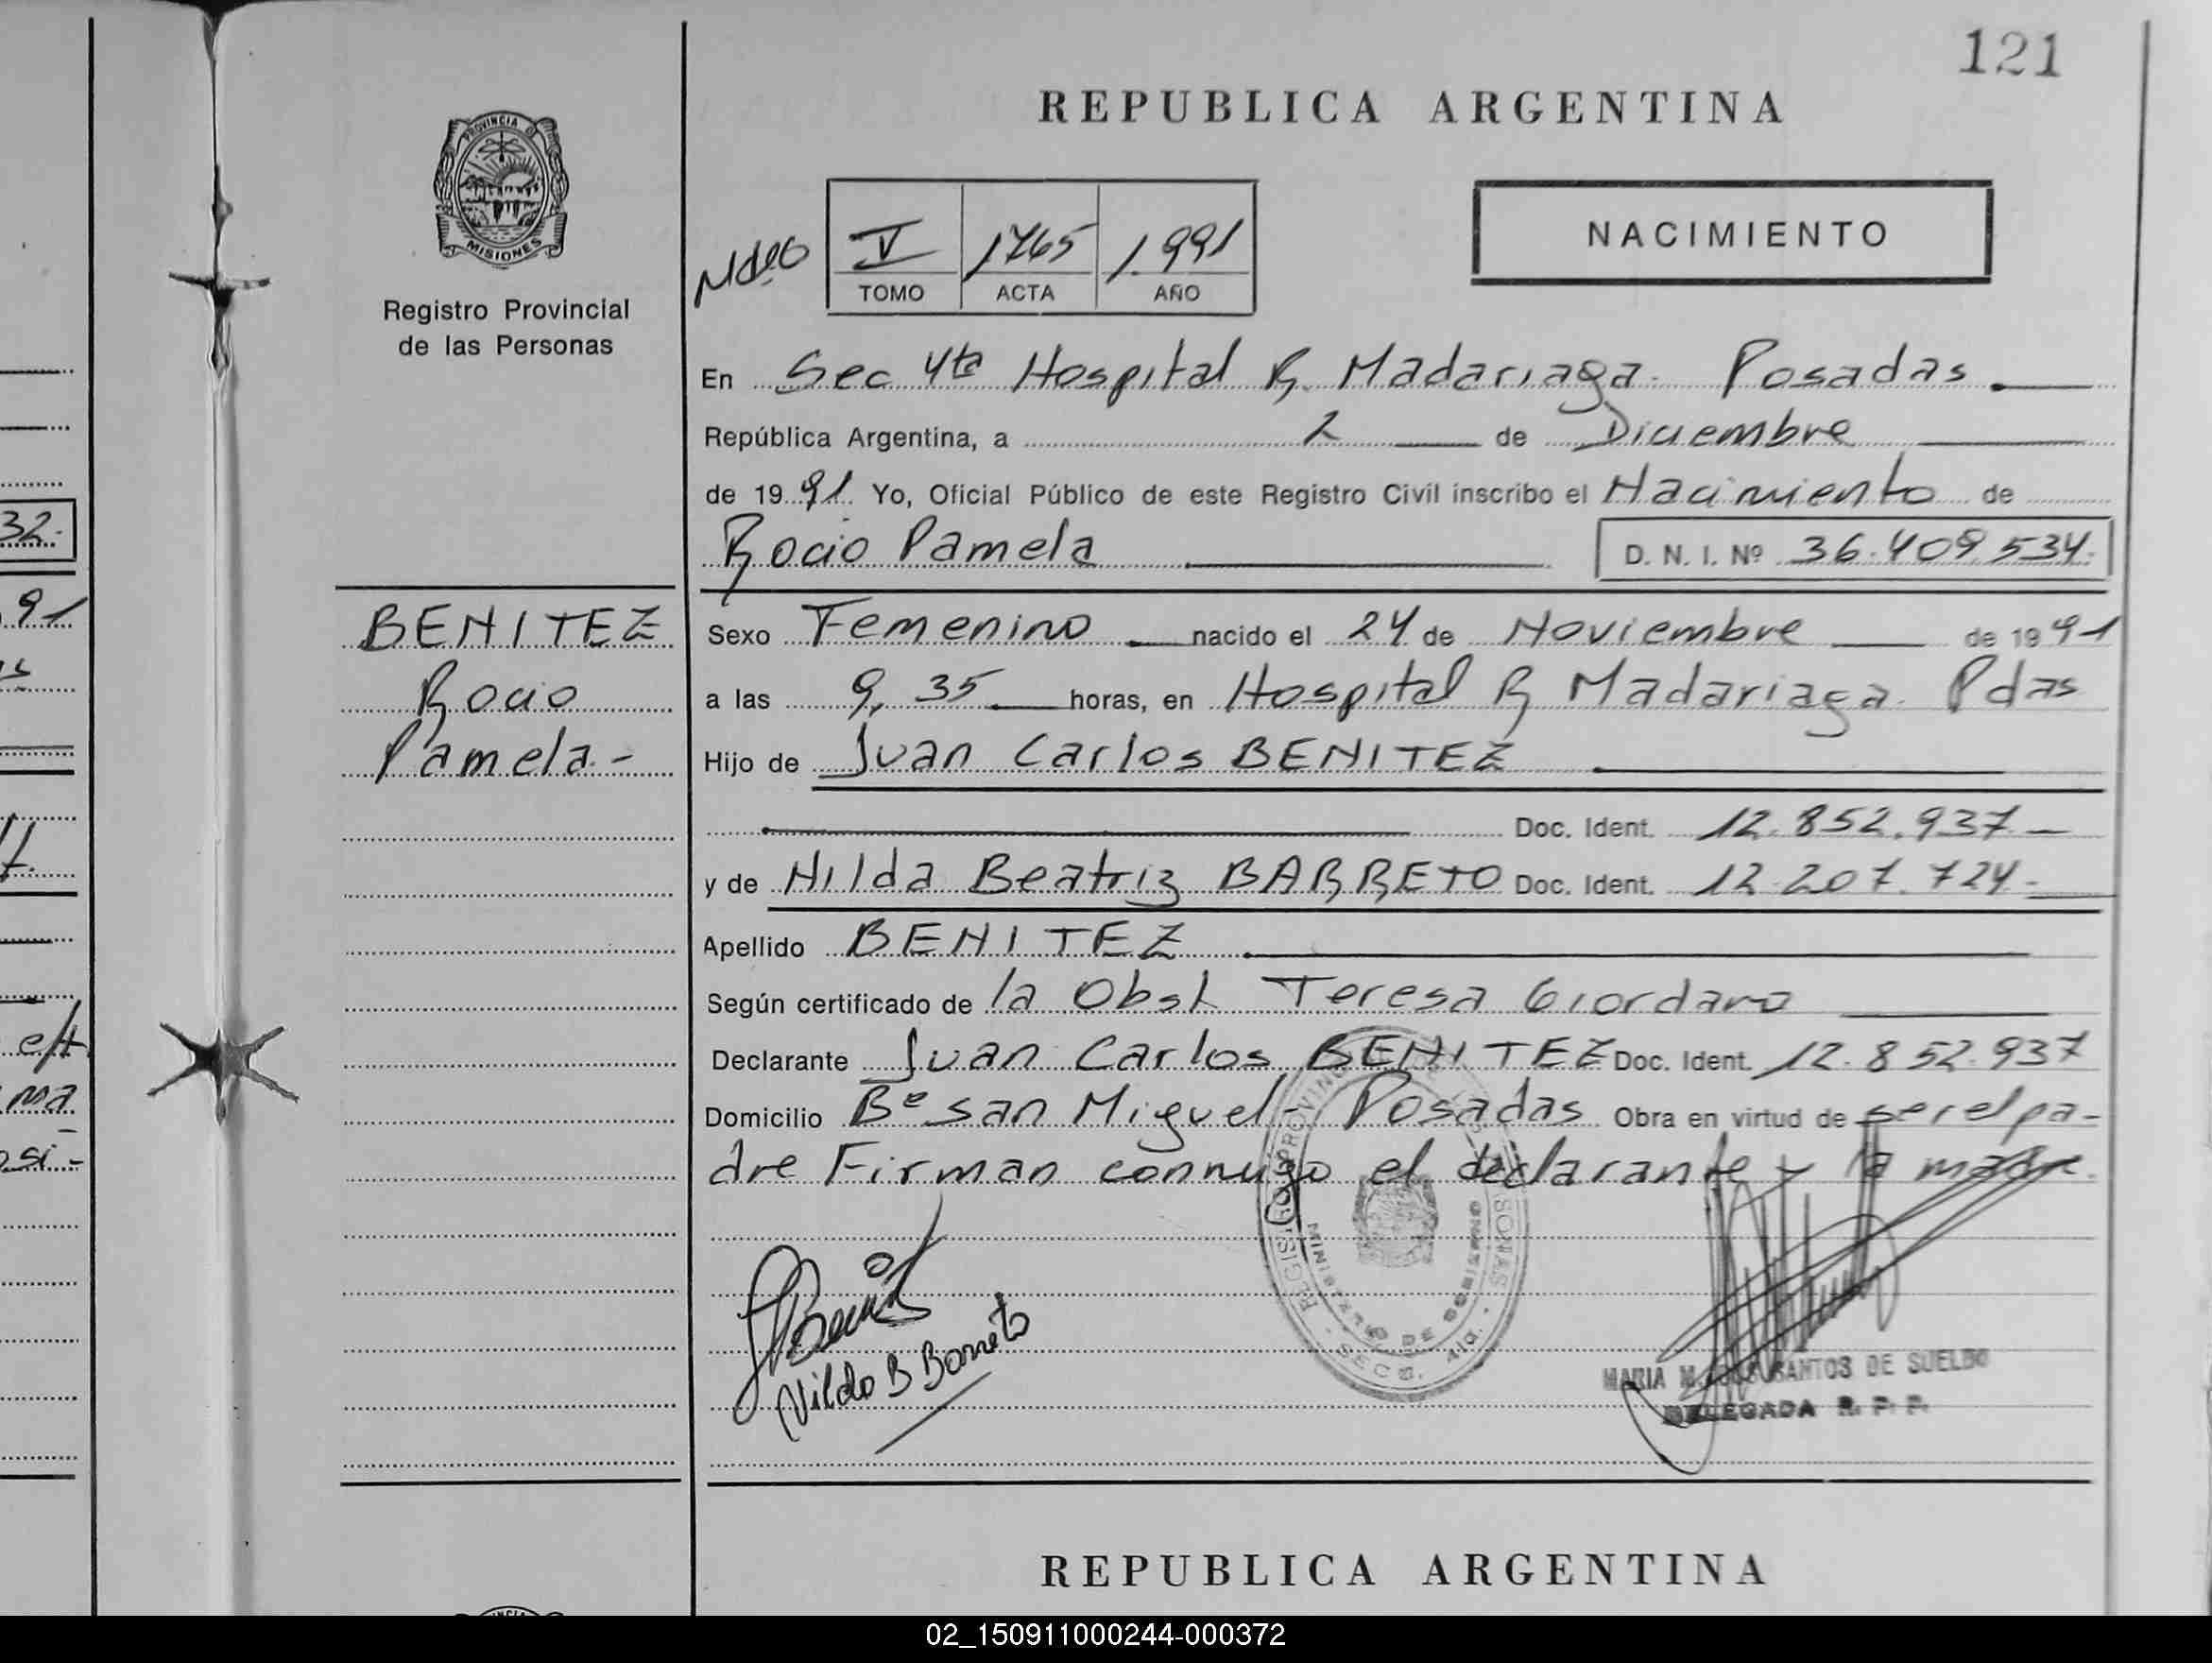 121
REPUBLICA ARGENTINA
PROVINCIA D
MISIONES
Registro Provincial
de las Personas
V 1765 1.991
TOMO ACTA AÑO
NACIMIENTO
En Sec 4ta Hospital R. Madariaga. Posadas.
República Argentina, a 2 de Diciembre
de 1991 Yo, Oficial Público de este Registro Civil inscribo el Nacimiento de
Rocio Pamela D. N. I. Nº 36.409.534.
BENITEZ
Rocio
Pamela.-
Sexo Femenino nacido el 24 de Noviembre de 1991
a las 9,35 horas, en Hospital R Madariaga. Pdas
Hijo de Juan Carlos BENITEZ
Doc. Ident. 12.852.937-
y de Nilda Beatriz BARRETO Doc. Ident. 12.207.724-
Apellido BENITEZ
Según certificado de la Obst Teresa Giordano
Declarante Juan Carlos BENITEZ Doc. Ident. 12.852.937
Domicilio Bº San Miguel- Posadas Obra en virtud de ser el pa-
dre Firman conmigo el declarante y la madre.
Nilda B Barreto
MARIA SANTOS DE SUELDO
DELEGADA R. P. P.
REPUBLICA ARGENTINA
02_150911000244-000372
32.
91
ma
osi-